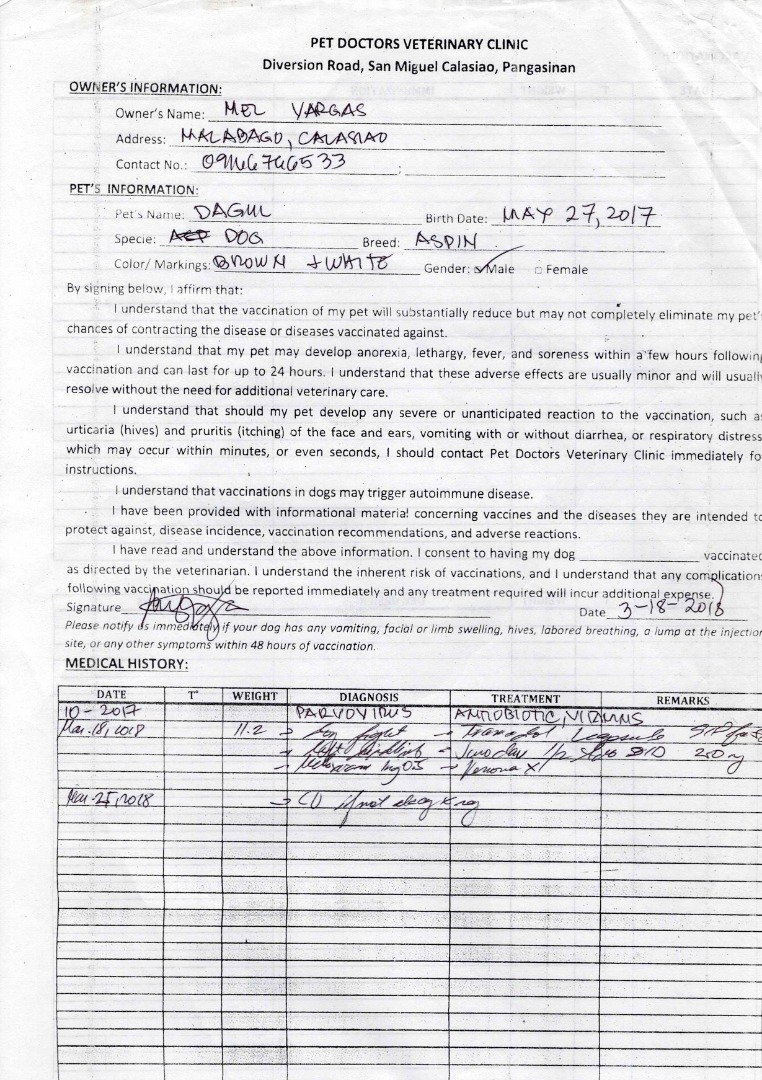 PET DOCTORS VETERINARY CLINIC
Diversion Road, San Miguel Calasiao, Pangasinan
OWNER'S INFORMATION:
Owner's Name: MEL VARGAS
Address: MALABAGO, CALASIAO
Contact No.:
PET'S INFORMATION:
Pet's Name: DAGUL Birth Date: MAY 27, 2017
Specie: DOG Breed: ASPIN
Color/ Markings: BROWN + WHITE Gender: Male Female
By signing below, I affirm that:
I understand that the vaccination of my pet will substantially reduce but may not completely eliminate my pet's
chances of contracting the disease or diseases vaccinated against.
I understand that my pet may develop anorexia, lethargy, fever, and soreness within a few hours following
vaccination and can last for up to 24 hours. I understand that these adverse effects are usually minor and will usually
resolve without the need for additional veterinary care.
I understand that should my pet develop any severe or unanticipated reaction to the vaccination, such as
urticaria (hives) and pruritis (itching) of the face and ears, vomiting with or without diarrhea, or respiratory distress
which may occur within minutes, or even seconds, I should contact Pet Doctors Veterinary Clinic immediately fo
instructions.
I understand that vaccinations in dogs may trigger autoimmune disease.
I have been provided with informational material concerning vaccines and the diseases they are intended to
protect against, disease incidence, vaccination recommendations, and adverse reactions.
I have read and understand the above information. I consent to having my dog vaccinated
as directed by the veterinarian. I understand the inherent risk of vaccinations, and I understand that any complication
following vaccination should be reported immediately and any treatment required will incur additional expense.
Signature Date 3-18-2018
Please notify us immediately if your dog has any vomiting, facial or limb swelling, hives, labored breathing, a lump at the injection
site, or any other symptoms within 48 hours of vaccination.
MEDICAL HISTORY:
DATE T° WEIGHT DIAGNOSIS TREATMENT REMARKS
10-2017 PARVOVIRUS ANTIBIOTIC,
Mar. 18, 2018 11.2 fight
Mar. 25, 2018